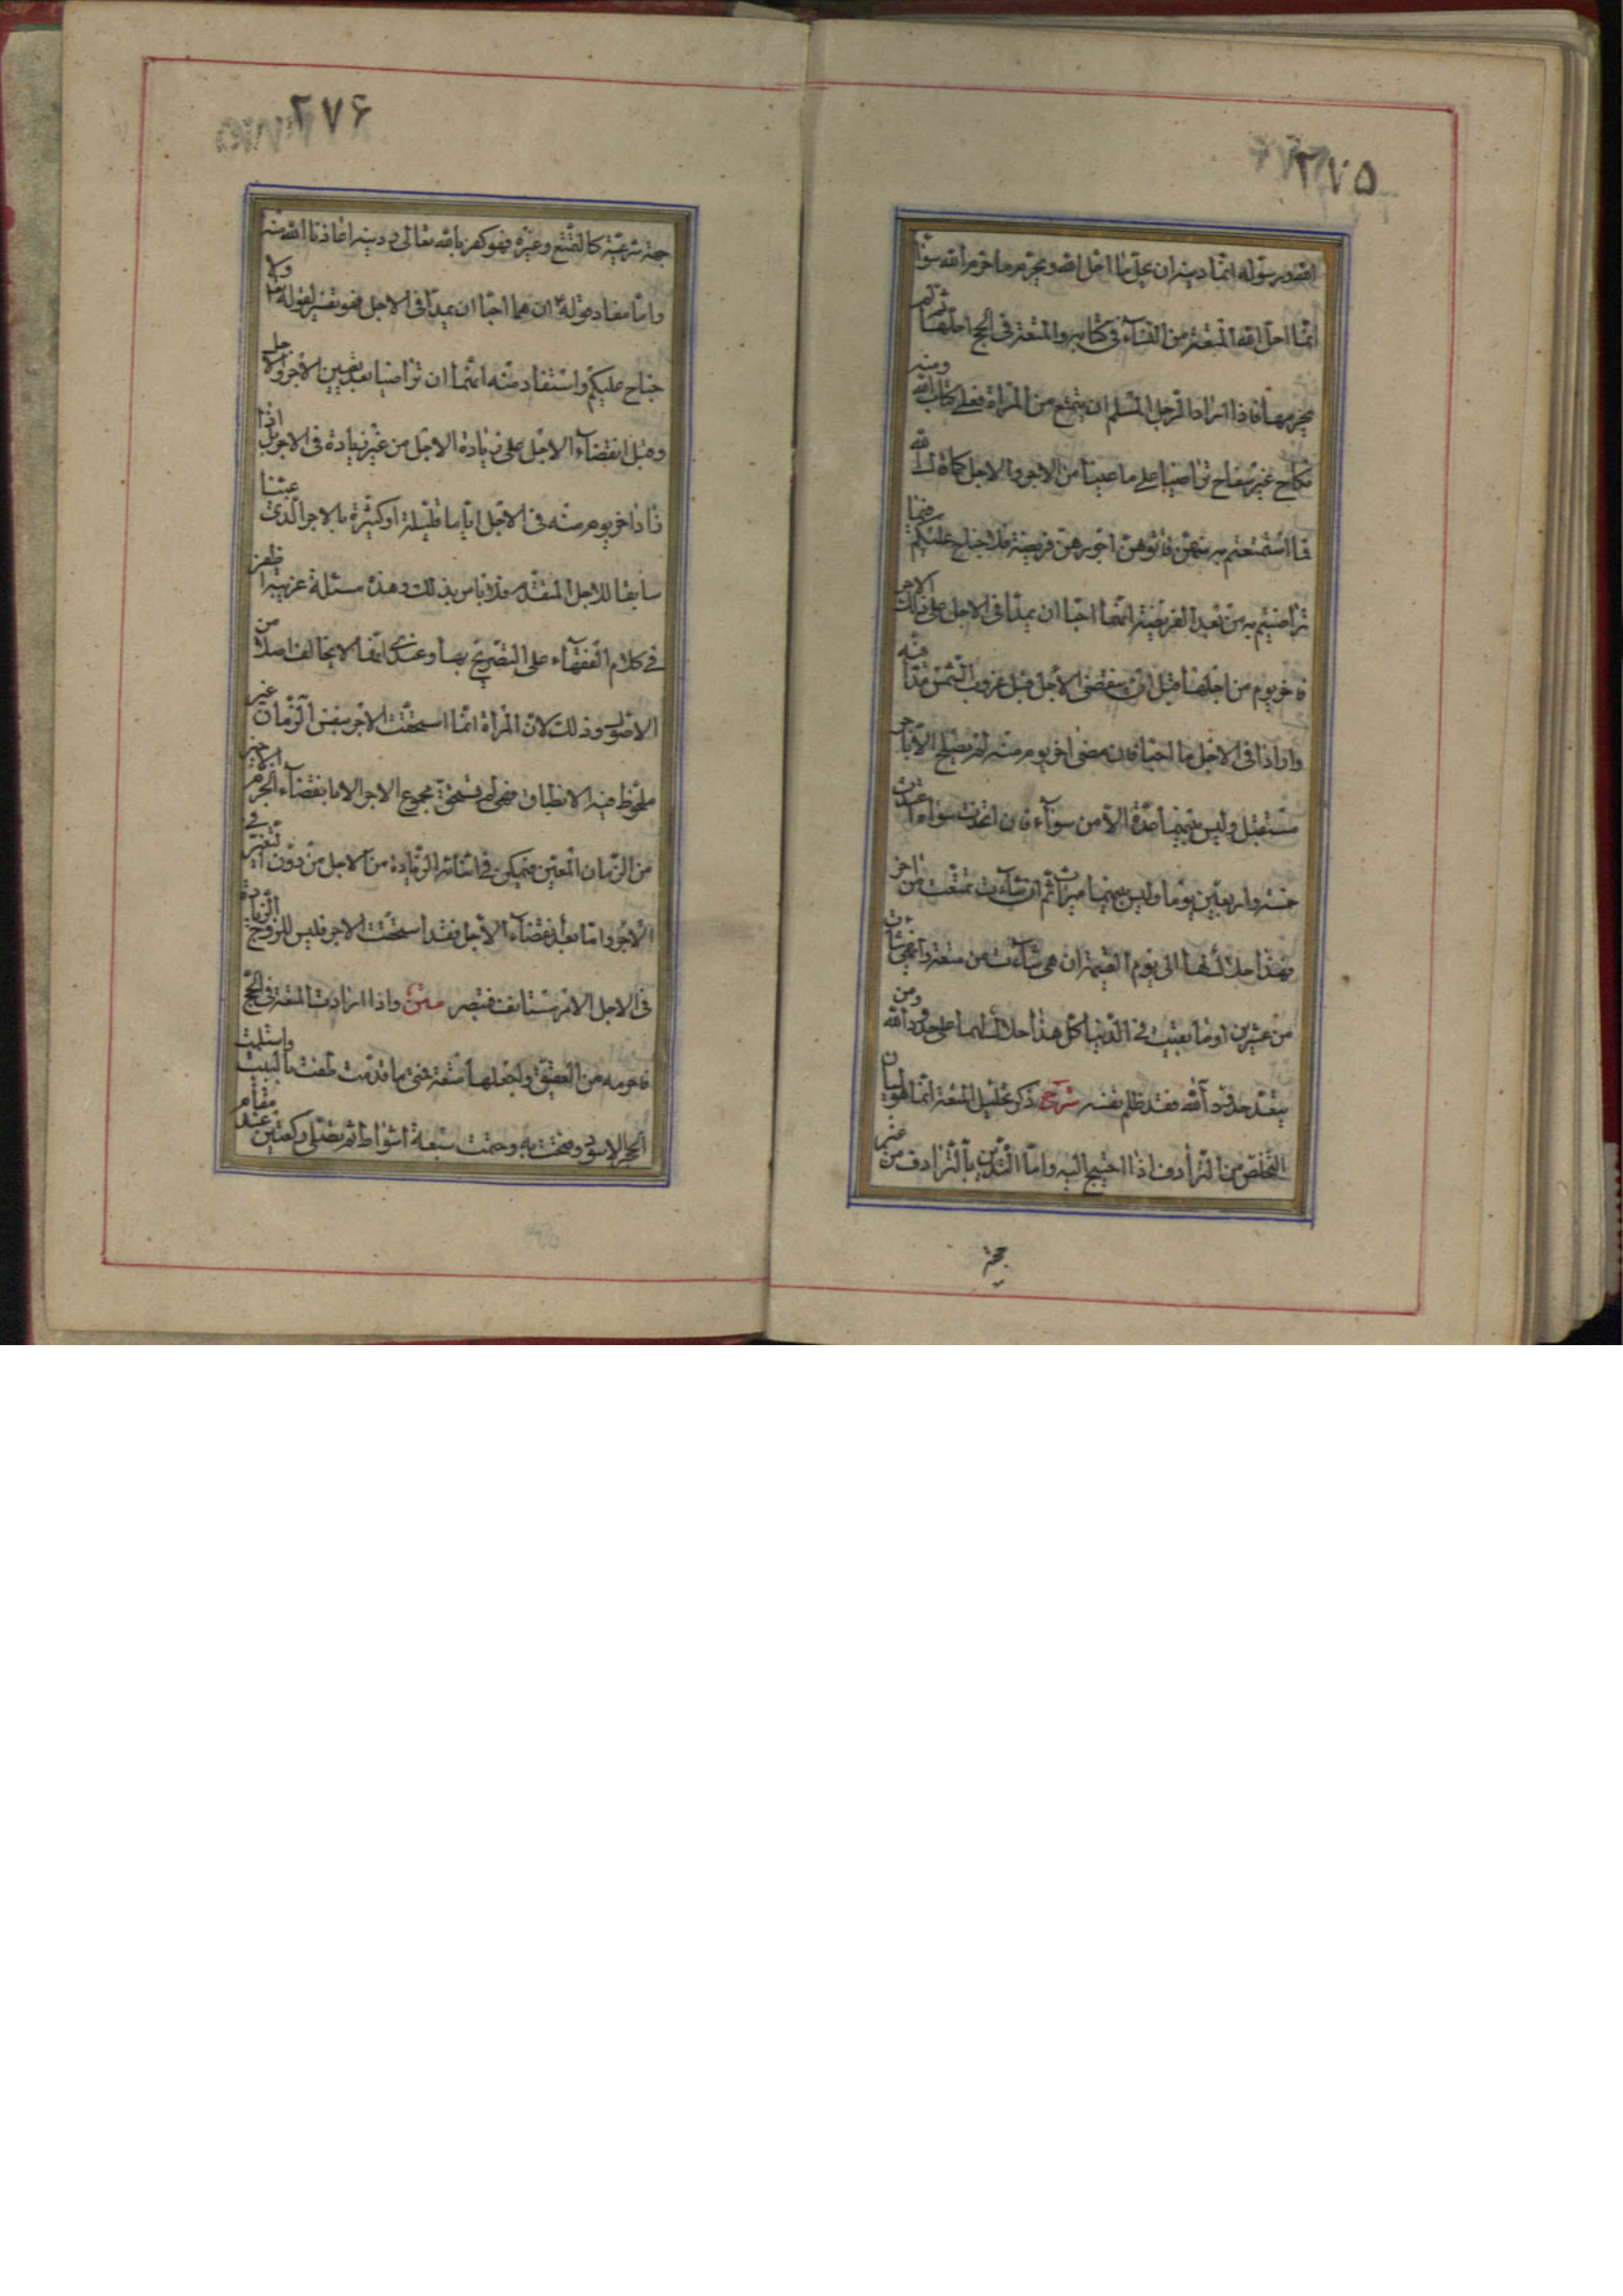 ٢٧٥
الله ورسوله انما دينه ان يحل ما احل الله ويحرم ما حرم الله سوآ
انما احل الله المتعة من النسآء في كتابه والمتعة في الحج احلهما ثم لم
يحرمهما فاذا اراد الرجل المسلم ان يتمتع من المراة فعلى كتاب الله ومنه
نكاح غير سفاح تراضيا على ما عينا من الاجر والاجل كما قال الله
فما استمتعتم به منهن فاتوهن اجورهن فريضة فلا جناح عليكم فيما
تراضيتم به من بعد الفريضة انهما احبا ان يمدا في الاجل على ذلك الاجر
فاخر يوم من اجلهما قبل ان ينقضي الاجل قبل غروب الشمس مدا فيه
وازادا في الاجل ما احبا فان مضى اخر يوم منه لم يصلح الا بامر
مستقبل وليس بينهما عدة الا من سوآء فان اتخذت سواه اعتدت
خمسة واربعين يوما وليس بينهما ميراث ثم ان شآءت تمتعت من اخر
فهذا حلال لهما الى يوم القيمة ان هي شآءت من سبعة وان هي شاءت
من عشرين او ما بقيت في الدنيا كل هذا حلال لهما على حدود الله ومن
يتعد حدود الله فقد ظلم نفسه شرح ذكر تحليل المتعة انما هو لبيان
التخلص من الترادف اذا احتيج اليه واما التدين بالترادف من غير
جهة
٢٧۶
جهة شرعية كالتمتع وغيره فهو كفر بالله تعالى ودينه اعاذنا الله منه
واما مفاد قوله ان هما احبا ان يمدا في الاجل فهو تفسير لقوله ولا
جناح عليكم واستفاد منه انهما ان تراضيا بعد تعيين الاجر والاجل
وقبل انقضآء الاجل على زيادة الاجل من غير زيادة في الاجر بل اذا
زادا اخر يوم منه في الاجل اياما قليلة او كثيرة بالاجر الذي عينا
سابقا للاجل المتقدم فلا باس بذلك وهذه مسئلة غريبة لم اظفر
في كلام الفقهآء على التصريح بها وعندي انها لا يخالف اصلا من
الاصول وذلك لان المراة انما استحقت الاجر بنفس الزمان غير
ملحوظ فيه الانطباق فهي لم تستحق مجموع الاجر الا بانقضآء الجزء الاخير
من الزمان المعين فيمكن في اثنائه الزيادة من الاجل من دون تغير في
الاجر واما بعد انقضآء الاجل فقد استحقت الاجر فليس للزوج الزيادة
في الاجل الا بامر مستانف فتبصر متن واذا اردت المتعة في الحج
فاحرمه من العقيق واجعلها متعة فمتى ما قدمت طفت بالبيت واستلمت
الحجر الاسود وفتحت به وختمت سبعة اشواط ثم تصلي ركعتين عند مقام